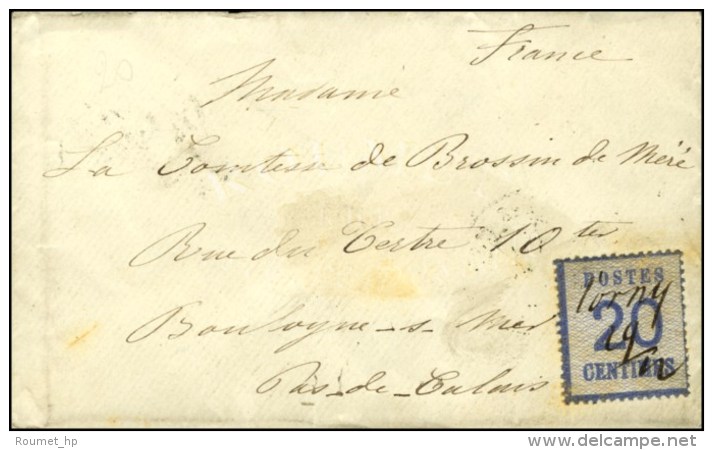 France
Madame
La Comtesse de Brossin de Méré
Rue du Tertre 10 ter
Boulogne-s-Mer
Pas-de-Calais
POSTES
20
CENTIMES
Corny
29/12
Roumet_hp
www.delcampe.net